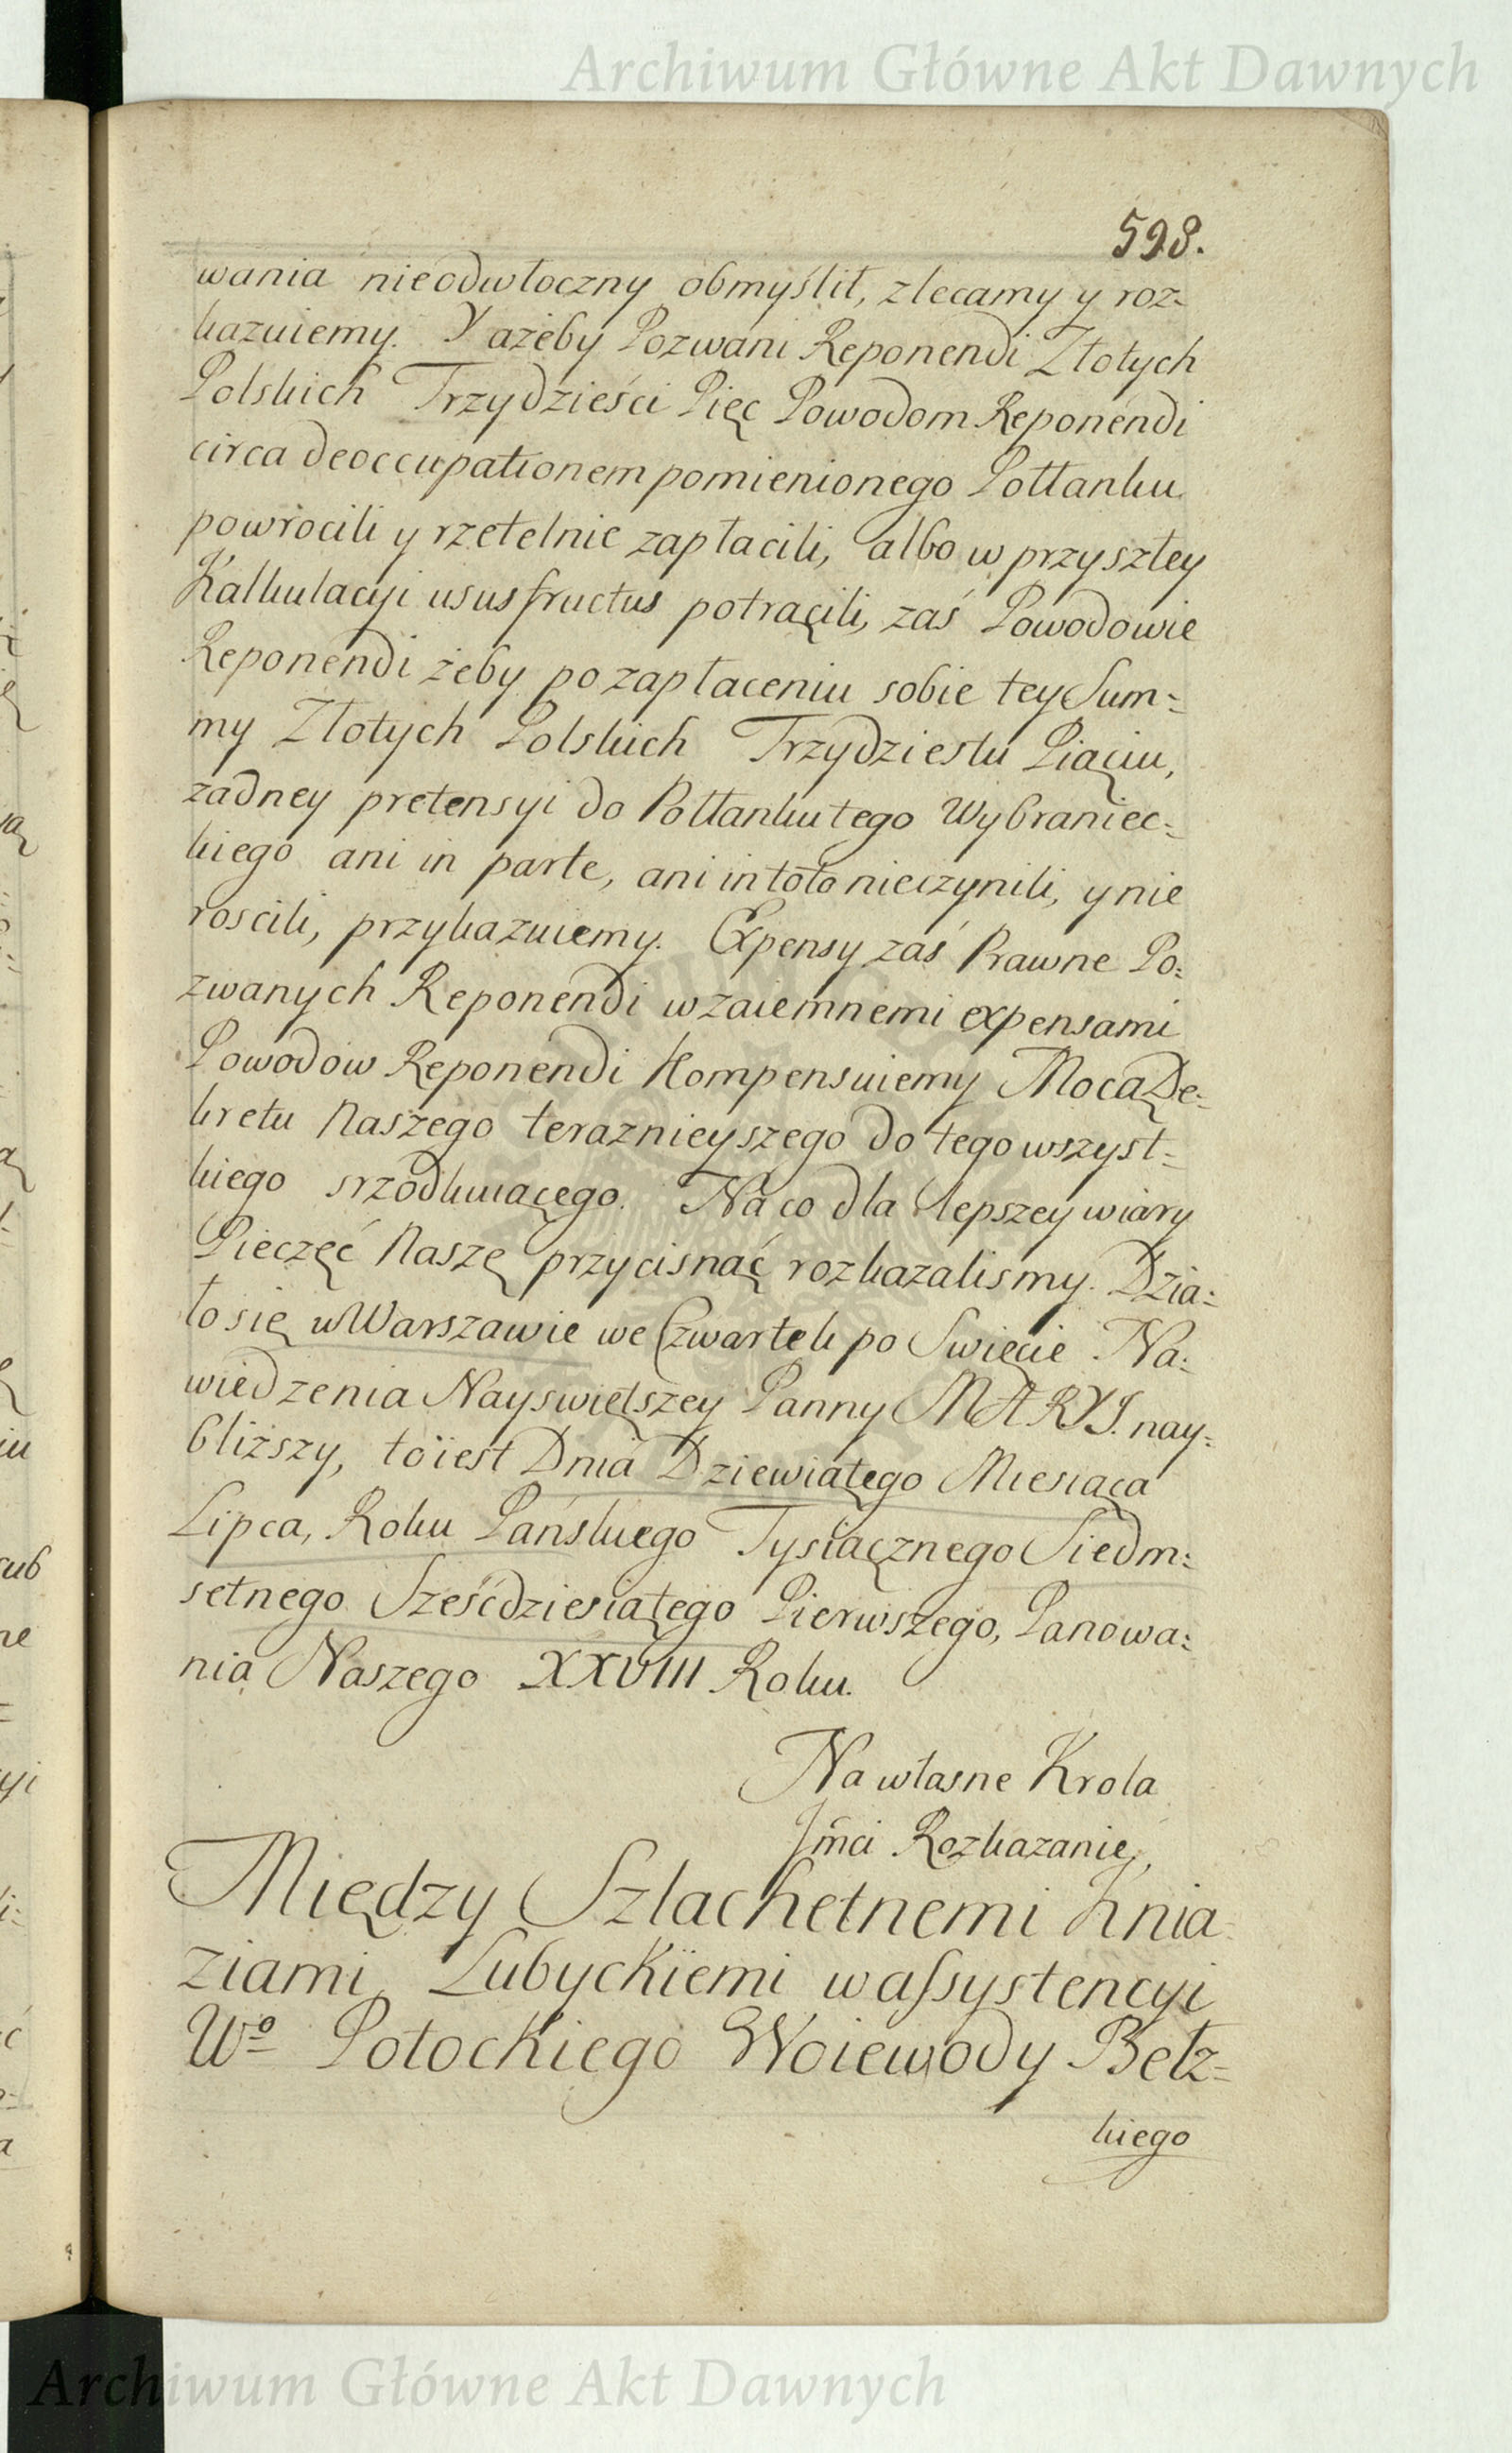 Archiwum Główne Akt Dawnych
598.
wania nieodwłoczny obmyślił, zlecamy y roz-
kazuiemy. Y ażeby Pozwani Reponendi Złotych
Polskich Trzydzieści Pięc Powodom Reponendi
circa deoccupationem pomienionego Połłanku
powrocili y rzetelnie zapłacili, albo w przyszłey
Kalkulacyi usus fructus potrącili, zaś Powodowie
Reponendi żeby po zapłaceniu sobie tey Sum=
my Złotych Polskich Trzydziestu Piąciu,
żadney pretensyi do Połłanku tego Wybraniec=
kiego ani in parte, ani in toto nieczynili, y nie
roscili, przykazuiemy. Expensy zaś Prawne Po=
zwanych Reponendi wzaiemnemi expensami
Powodow Reponendi Kompensuiemy Mocą De=
kretu Naszego teraznieyszego do tego wszyst=
kiego srzodkuiącego. Na co dla lepszey wiary
Pieczęć Naszę przycisnąć rozkazalismy. Dzia=
ło się w Warszawie we Czwartek po Swięcie Na=
wiedzenia Nayswiętszey Panny MARYI. nay=
bliższy, to iest Dnia Dziewiątego Miesiąca
Lipca, Roku Pańskiego Tysiącznego Siedm=
setnego Sześćdziesiątego Pierwszego, Panowa=
nia Naszego XXVIII Roku.
Na własne Krola
Jmci Rozkazanie,
Między Szlachetnemi Knia=
ziami Lubyckiemi w assystencyi
Wo Potockiego Woiewody Bełz=
kiego
Archiwum Główne Akt Dawnych